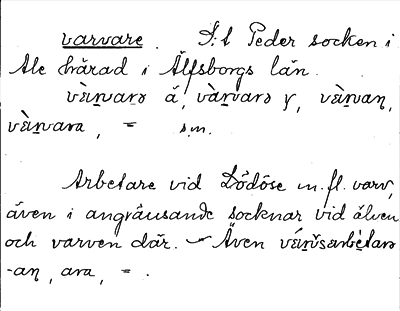 varvare. S:t Peder socken i
Ale härad i Älfsborgs län.
vàṟvarə å, vàṟvarə y, vàṟvaṇ,
vàṟvara, = s.m.
Arbetare vid Lödöse m.fl. varv,
även i angränsande socknar vid älven
och varven där. — Även
-aṇ, ara, = .